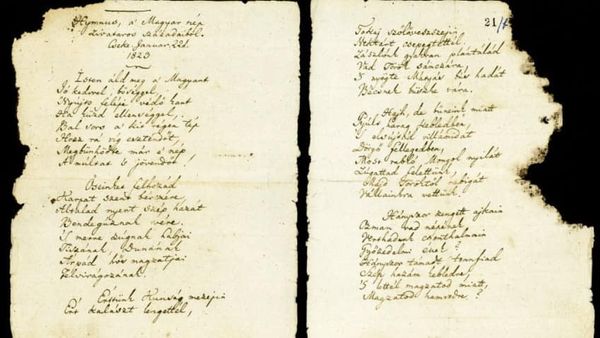 Hymnus, a' Magyar nép
Zivataros századaiból.
Cseke Januar. 22d.
1823
Isten áld meg a' Magyart
Jó kedvvel, bőséggel,
Nyújts feléje védő kart
Ha küzd ellenséggel;
Bal sors a' kit régen tép
Hozz rá víg esztendőt
Megbünhödte már e' nép
A' multat 's jövendőt!
Őseinket felhozád
Karpat szent bérczére,
Általad nyert szép hazát
Bendeguznak vére,
'S merre zúgnak habjai
Tiszának, Dunának,
Árpád hős magzatjai
Felvirágozának.
Értünk Kunság mezejin
Ért kalászt lengettél,
21/
Tokaj szőlővesszején
Nektárt csepegtettél,
Zászlónk gyakran plántálád
Vad Török sánczára,
'S nyögte Mátyás bús hadát
Bécsnek büszke vára.
Hajh, de bűneink miatt
Gyúlt harag kebledben,
'S elsújtád villámidat
Dörgő fellegedben,
Most rabló Mongol nyilát
Zúgattad felettünk,
Majd Töröktől
Vállainkra vettünk.
Hányszor zengett ajkain
Ozman vad népének
Vert hadunk csonthalmain
Győzedelmi ének?
Hányszor támadt tenfiad
Szép hazám kebledre,
'S lettél magzatod miatt,
Magzatod hamvvedre?